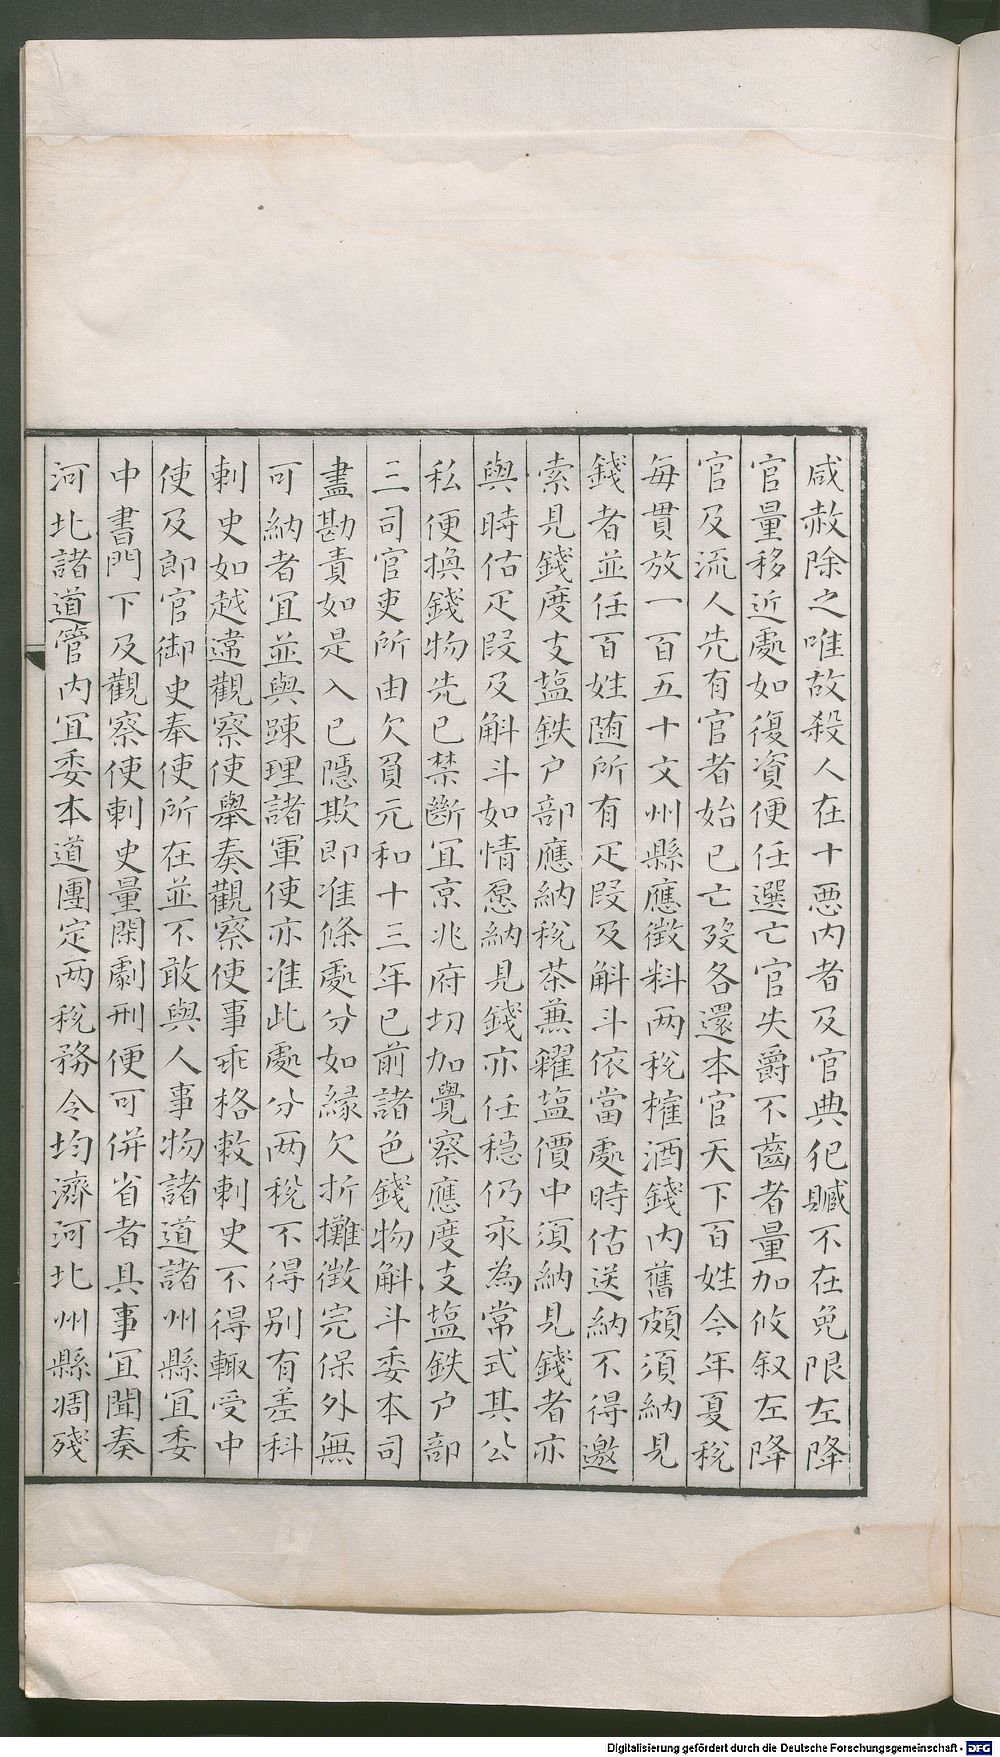 咸赦除之唯故殺人在十惡內者及官典犯贓不在免限左降
官量移近處如復資便任選亡官失爵不齒者量加收叙左降
官及流人先有官者始已亡歿各還本官天下百姓今年夏稅
每貫放一百五十文州縣應徵科两稅榷酒錢内舊額須納見
錢者並任百姓随所有疋段及斛斗依當處時估送納不得邀
索見錢度支塩鉄户部應納稅茶兼糴塩價中須納見錢者亦
與時估疋段及斛斗如情愿納見錢亦任穏仍永為常式其公
私便換錢物先已禁斷冝京兆府切加覺察應度支塩鉄户部
三司官吏所由欠負元和十三年已前諸色錢物斛斗委本司
盡勘責如是入已隱欺即准條處分如緣欠折攤徵完保外無
可納者冝並與踈理諸軍使亦准此處分两稅不得别有差科
刺史如越違觀察使舉奏觀察使事乖格敕刺史不得輙受中
使及郎官御史奉使所在並不敢與人事物諸道諸州縣冝委
中書門下及觀察使刺史量閑劇刑便可併省者具事冝聞奏
河北諸道管内冝委本道團定两稅務令均濟河北州縣凋殘
Digitalisierung gefördert durch die Deutsche Forschungsgemeinschaft - DFG